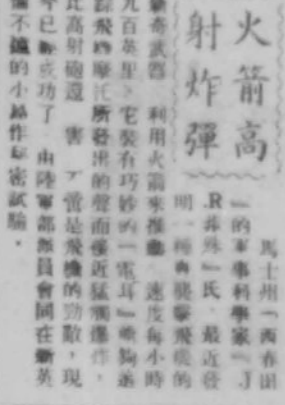 火箭高
射炸彈
馬士州「西春田
」的軍事科學家「J
.R 氏,最近發
明一種專襲擊飛機的
新奇武器 利用火箭來推動 速度每小時
九百英里,它裝有巧妙的「電耳」能夠追
踪飛機摩托所發出的聲而接近猛 爆炸,
比高射砲還 害 當是飛機的勁敵,現
今已經成功了 由陸軍部派員會同在新英
不遠的小島作秘密試驗。